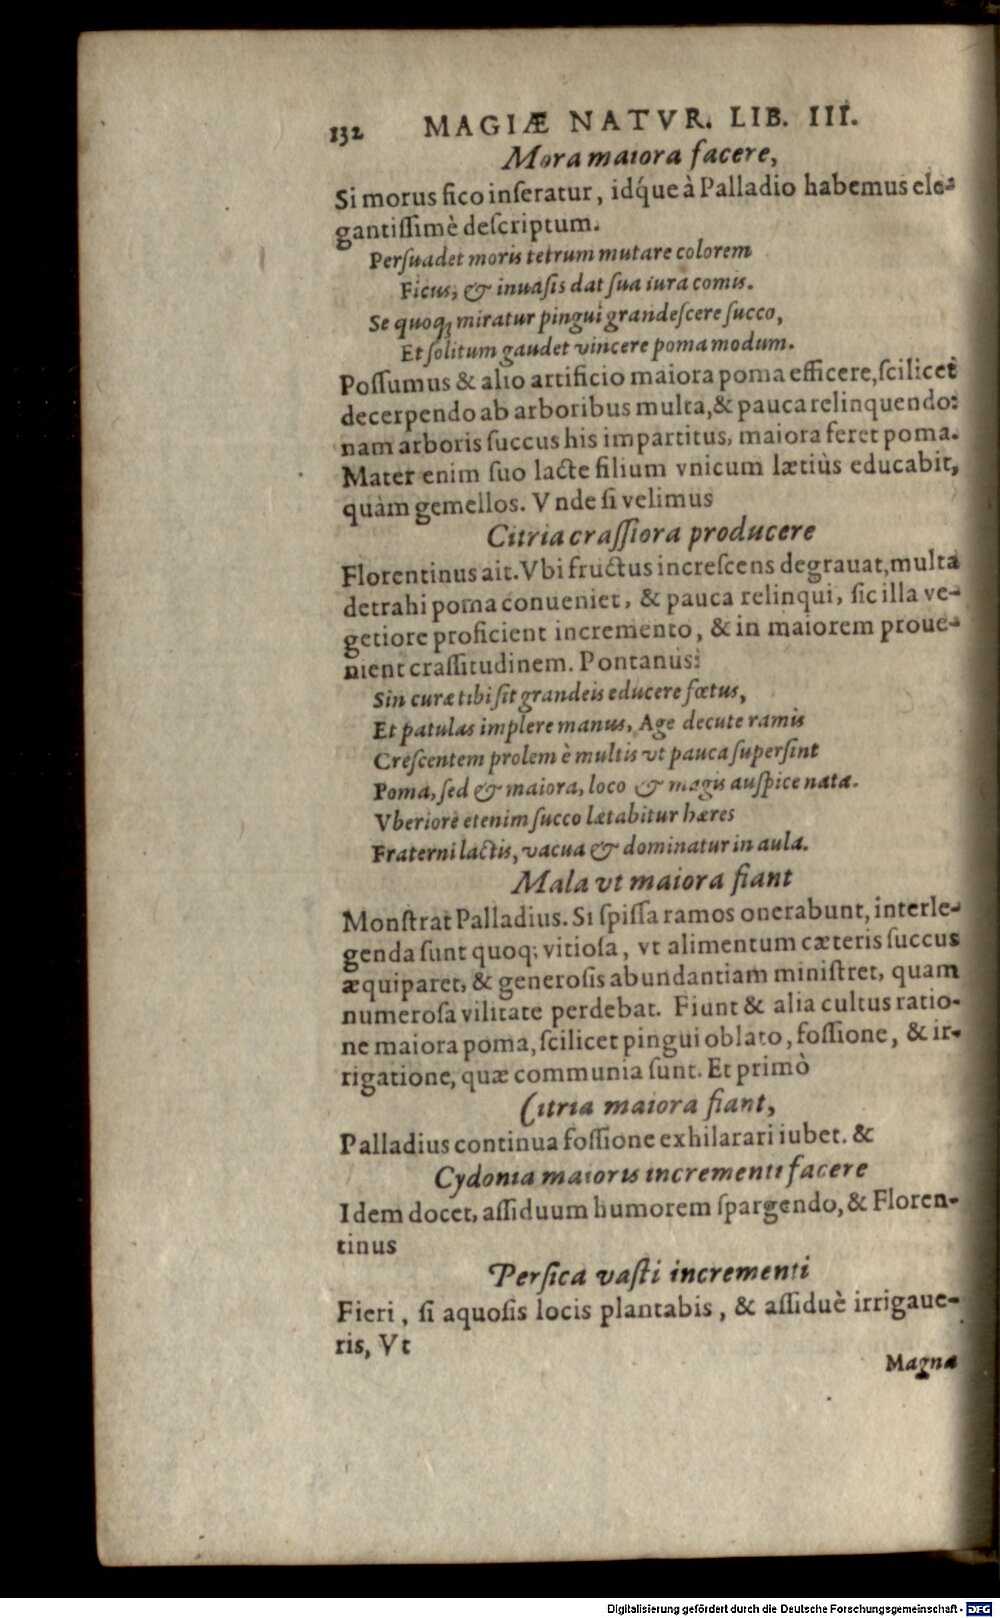 132 MAGIÆ NATVR. LIB. III.
Mora maiora facere,
Si morus fico inſeratur, idq́ue à Palladio habemus ele-
gantiſſimè deſcriptum.
Perſuadet moris tetrum mutare colorem
Ficus, & inuaſis dat ſua iura comis.
Se quoq; miratur pingui grandeſcere ſucco,
Et ſolitum gaudet vincere poma modum.
Poſſumus & alio artificio maiora poma efficere, ſcilicet
decerpendo ab arboribus multa, & pauca relinquendo:
nam arboris ſuccus his impartitus, maiora feret poma.
Mater enim ſuo lacte filium vnicum lætiùs educabit,
quàm gemellos. Vnde ſi velimus
Citria craſſiora producere
Florentinus ait. Vbi fructus increſcens degrauat, multa
detrahi poma conueniet, & pauca relinqui, ſic illa ve-
getiore proficient incremento, & in maiorem proue-
nient craſſitudinem. Pontanus:
Sin curæ tibi ſit grandeis educere fœtus,
Et patulas implere manus, Age decute ramis
Creſcentem prolem è multis vt pauca ſuperſint
Poma, ſed & maiora, loco & magis auſpice nata.
Vberiore etenim ſucco lætabitur hæres
Fraterni lactis, vacua & dominatur in aula.
Mala vt maiora fiant
Monſtrat Palladius. Si ſpiſſa ramos onerabunt, interle-
genda ſunt quoq; vitioſa, vt alimentum cæteris ſuccus
æquiparet, & generoſis abundantiam miniſtret, quam
numeroſa vilitate perdebat. Fiunt & alia cultus ratio-
ne maiora poma, ſcilicet pingui oblato, foſſione, & ir-
rigatione, quæ communia ſunt. Et primò
Citria maiora fiant,
Palladius continua foſſione exhilarari iubet. &
Cydonia maioris incrementi facere
Idem docet, aſſiduum humorem ſpargendo, & Floren-
tinus
Perſica vaſti incrementi
Fieri, ſi aquoſis locis plantabis, & aſſiduè irrigaue-
ris, Vt
Magna
Digitalisierung gefördert durch die Deutsche Forschungsgemeinschaft - DFG